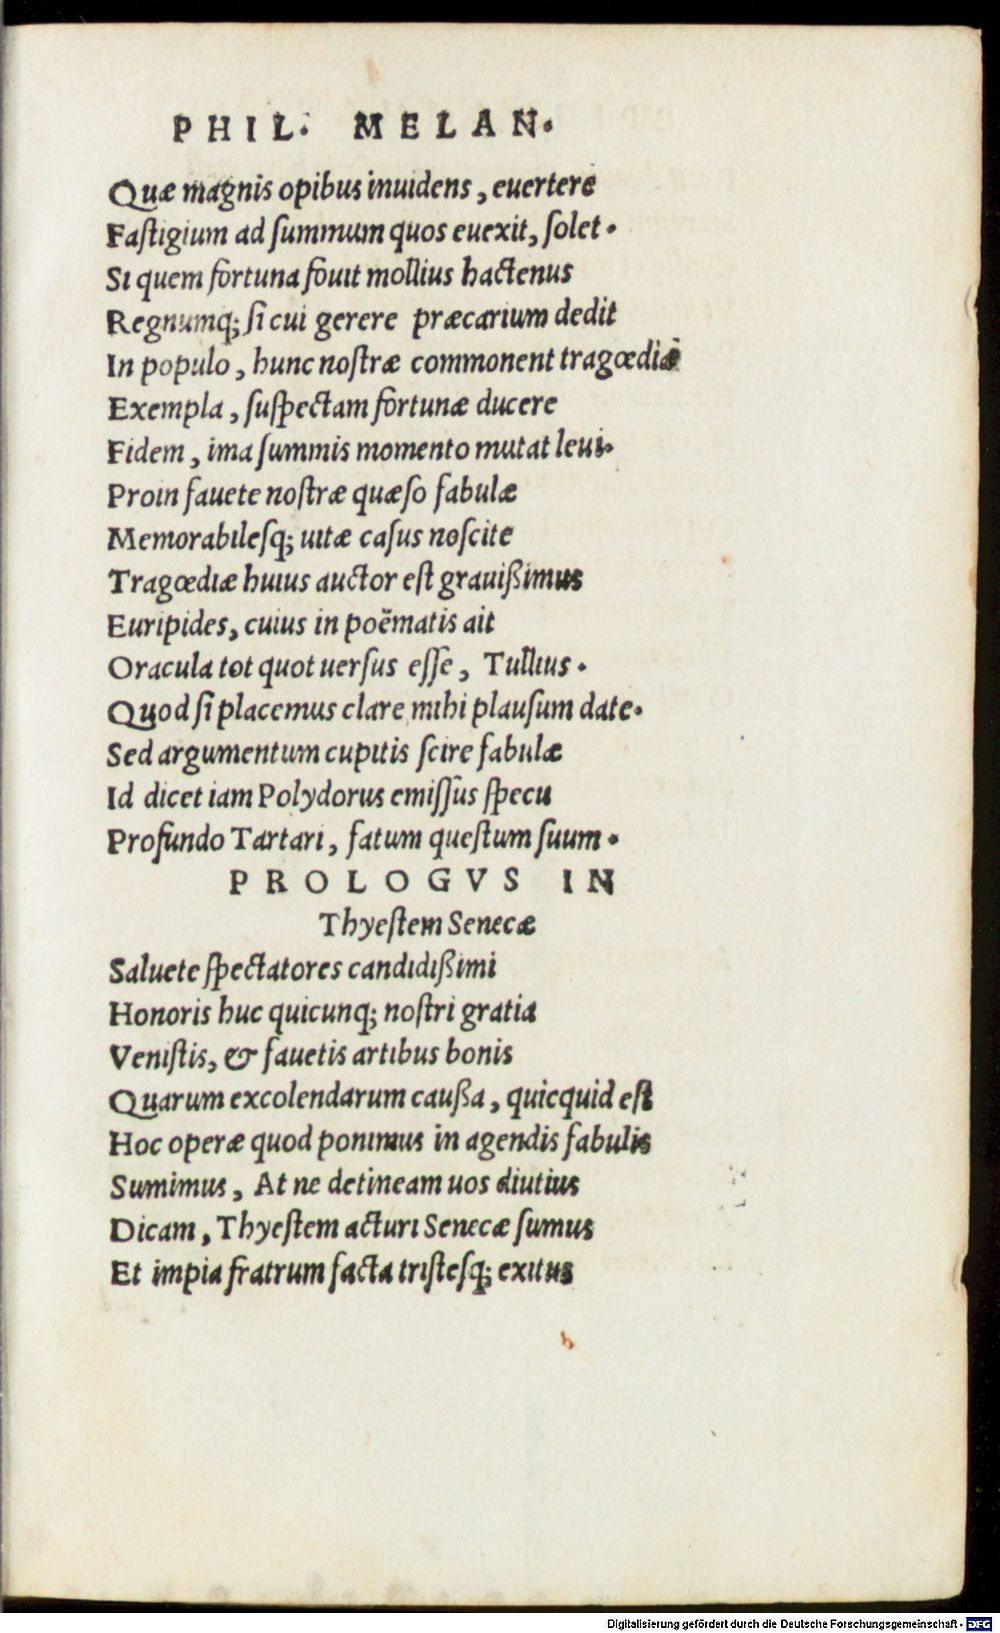 PHIL. MELAN.
Quæ magnis opibus inuidens, euertere
Faſtigium ad ſummum quos euexit, ſolet.
Si quem fortuna fouit mollius hactenus
Regnumq; ſi cui gerere præcarium dedit
In populo, hunc noſtræ commonent tragœdiæ
Exempla, ſuſpectam fortunæ ducere
Fidem, ima ſummis momento mutat leui.
Proin fauete noſtræ quæſo fabulæ
Memorabileſq; uitæ caſus noſcite
Tragœdiæ huius auctor eſt grauißimus
Euripides, cuius in poëmatis ait
Oracula tot quot uerſus eſſe, Tullius.
Quod ſi placemus clare mihi plauſum date.
Sed argumentum cupitis ſcire fabulæ
Id dicet iam Polydorus emiſſus ſpecu
Profundo Tartari, fatum queſtum ſuum.
PROLOGVS IN
Thyeſtem Senecæ
Saluete ſpectatores candidißimi
Honoris huc quicunq; noſtri gratia
Veniſtis, & fauetis artibus bonis
Quarum excolendarum caußa, quicquid eſt
Hoc operæ quod ponimus in agendis fabulis
Sumimus, At ne detineam uos diutius
Dicam, Thyeſtem acturi Senecæ ſumus
Et impia fratrum facta triſteſq; exitus
Digitalisierung gefördert durch die Deutsche Forschungsgemeinschaft - DFG